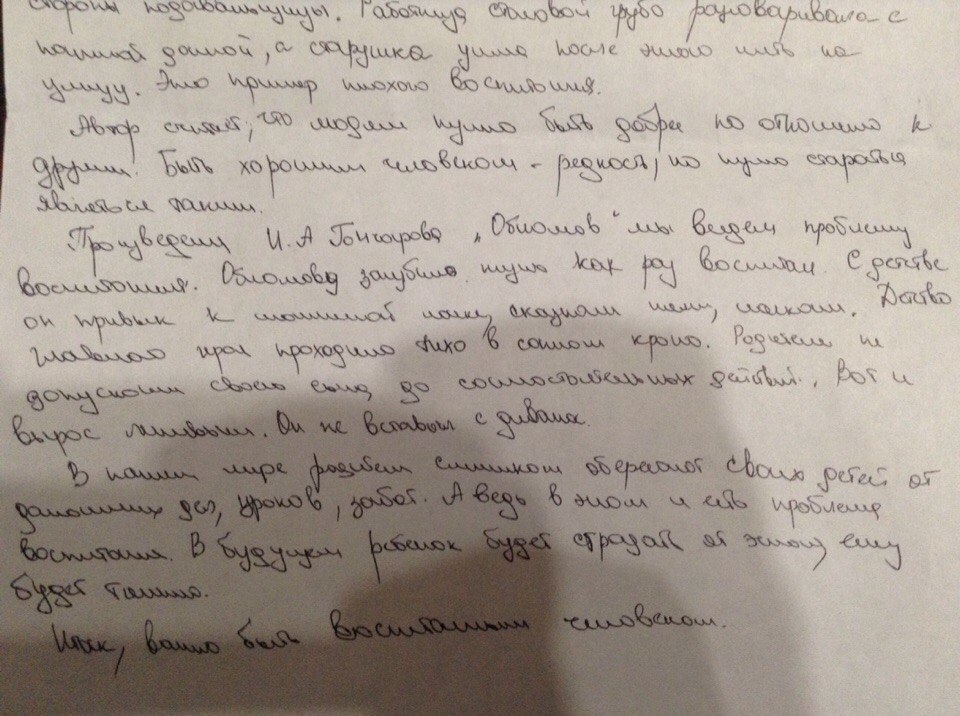 стороны подавальщицы. Работница столовой грубо разговаривала с
пожилой дамой, а старушка ушла после этого пить на
улицу. Это пример плохого воспитания.
Автор считает, что людям нужно быть добрее по отношению к
другим! Быть хорошим человеком - редкость, но нужно стараться
являться таким.
Произведении И.А Гончарова "Обломов" мы видем проблему
воспитания. Обломова загубило как раз воспитан. С детства
он привык к маминой ласке, сказкам няни, ласкам. Детство
главного героя проходило тихо в сонном краю. Родители не
допускали своего сына до самостоятельных действий. Вот и
вырос ленивым. Он не вставал с дивана.
В нашем мире родители слишком оберегают своих детей от
домашних дел, уроков, забот. А ведь в этом и есть проблема
воспитания. В будущем ребенок будет страдать от этого, ему
будет тяжело.
Итак, важно быть воспитанным человеком.